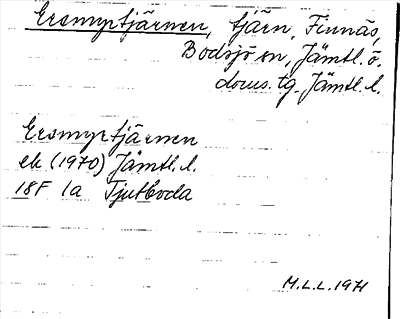 Ersmyrtjärnen, tjärn, Finnäs,
Bodsjö sn, Jämtl. ö.
doms. tg. Jämtl. l.
Ersmyrtjärnen
ek (1970) Jämtl. l.
18F 1a Tjutboda
M.L.L. 1971